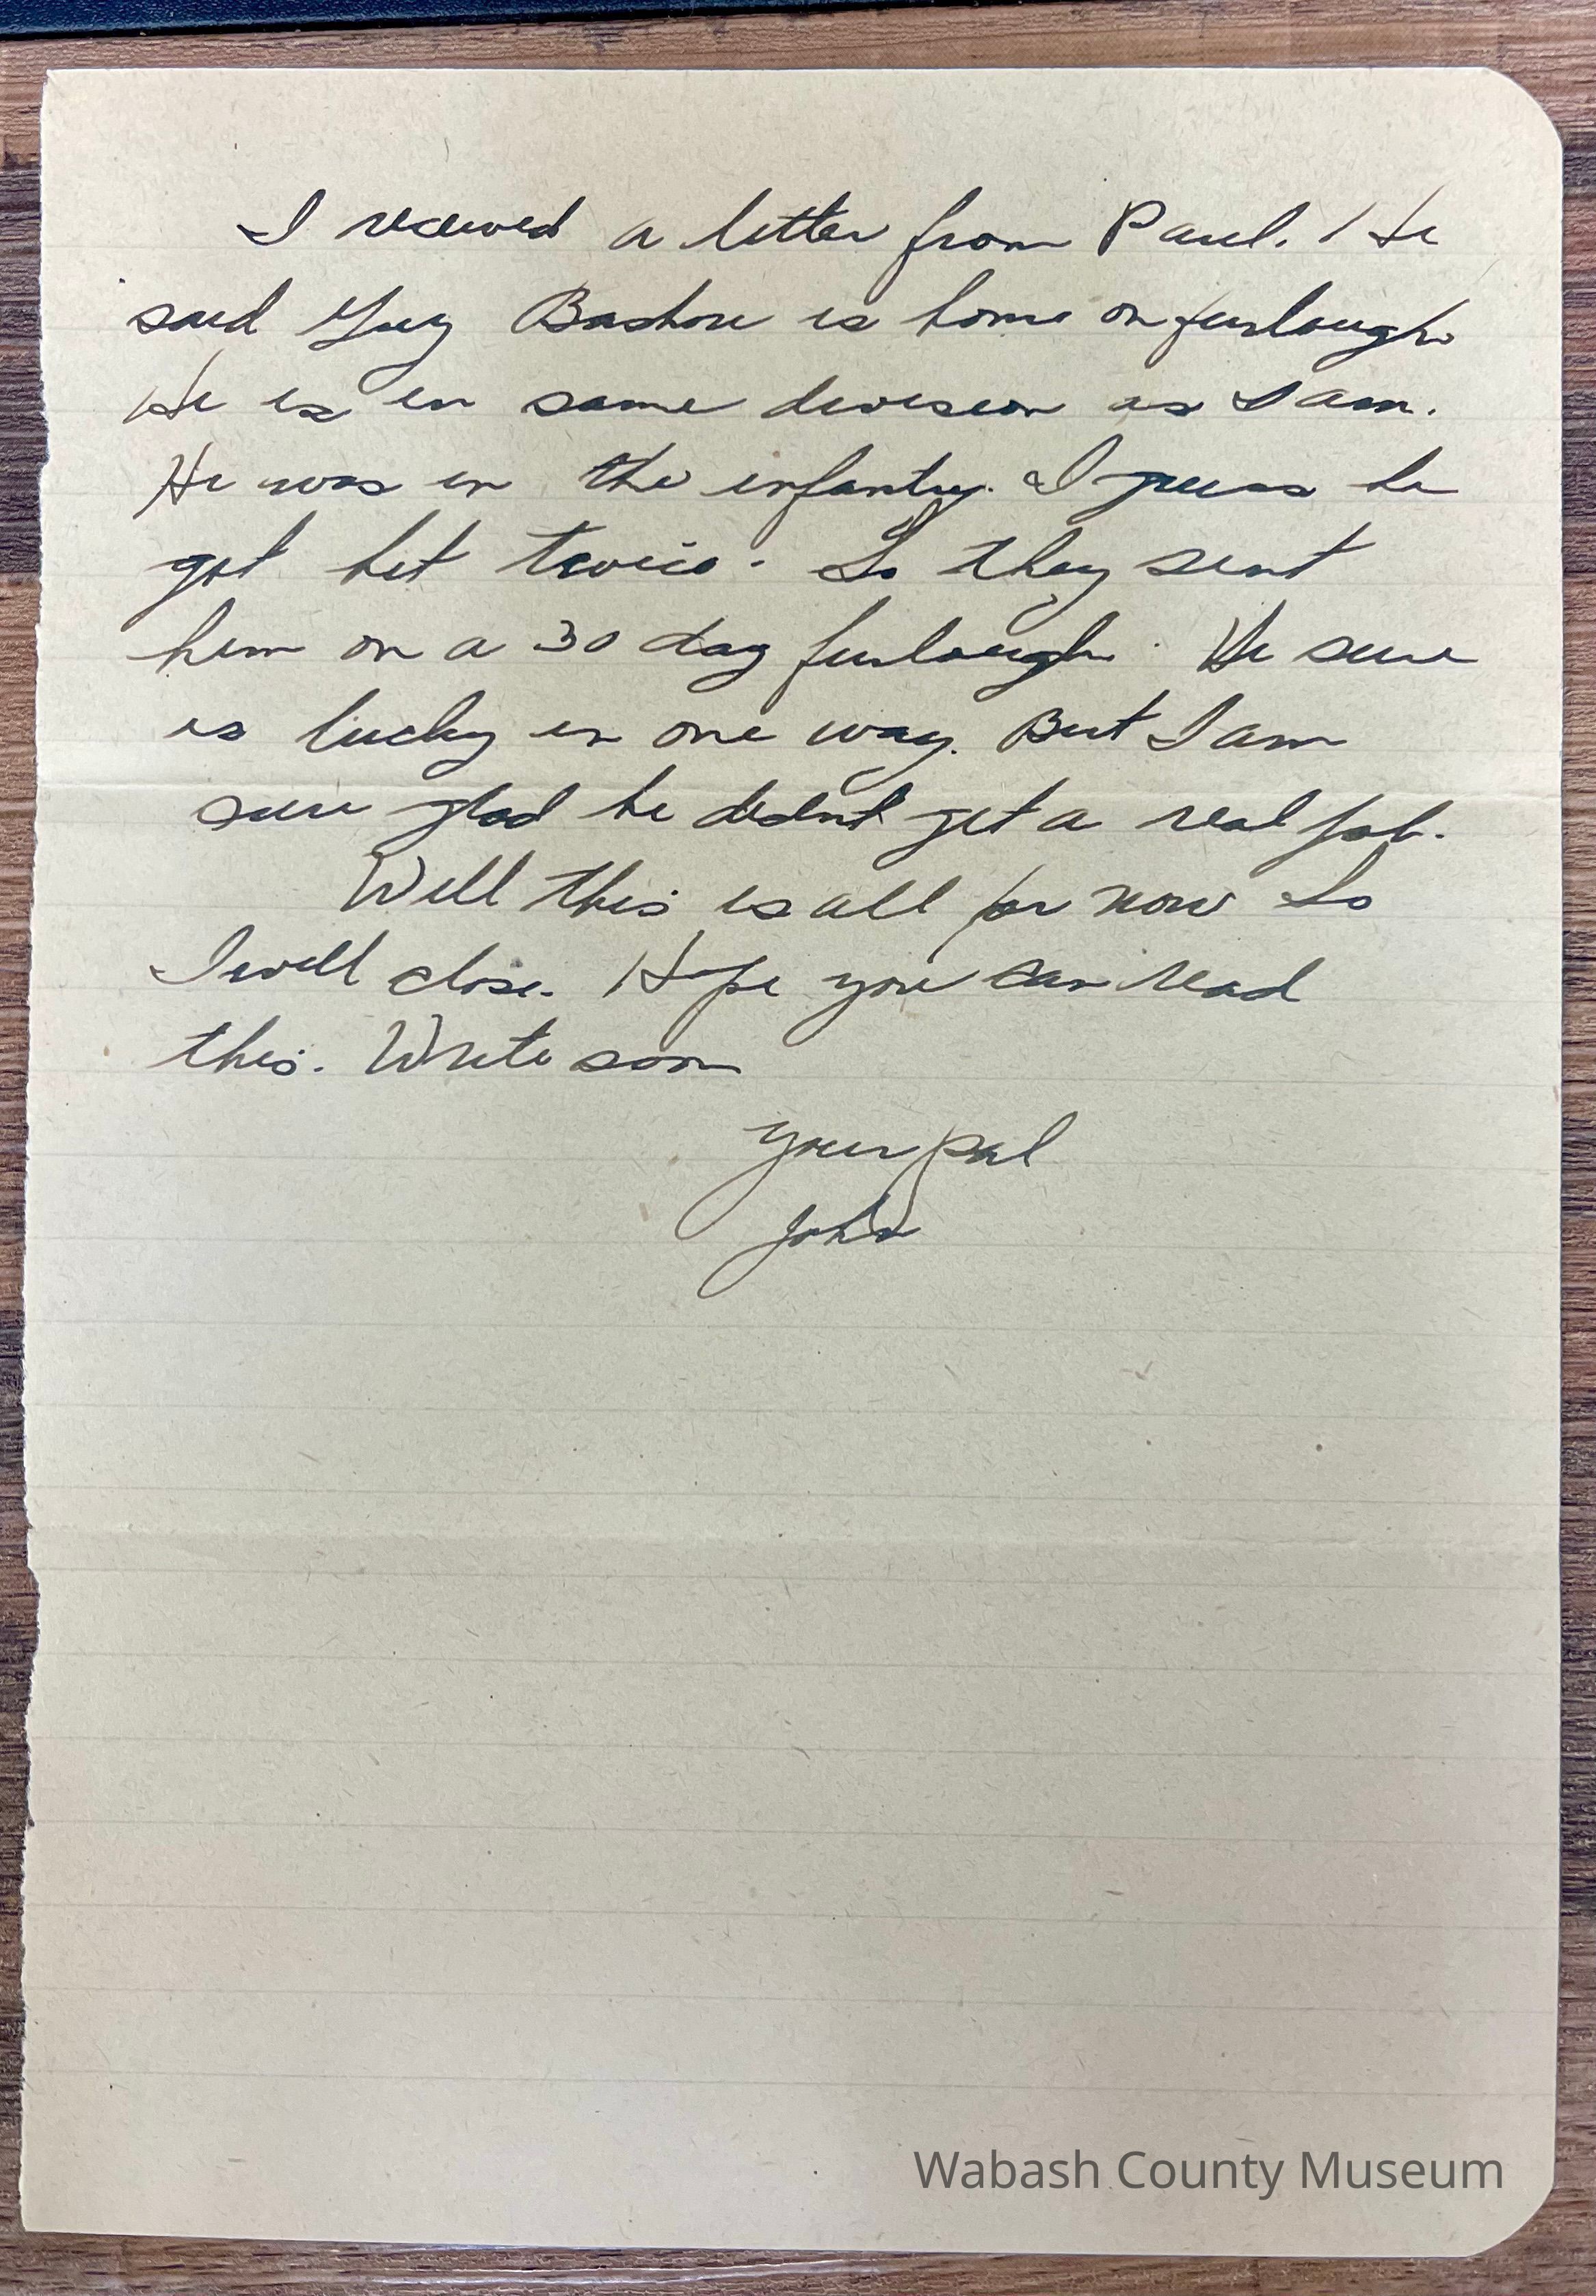 I received a letter from Paul. He
said Guy Bashore is home on furlough
He is in same division as I am.
He was in the infantry. I guess he
got hit twice. So they sent
him on a 30 day furlough. He sure
is lucky in one way. But I am
sure glad he didnt get a real job.
Well this is all for now So
I will close. Hope you can read
this. Write soon
your pal
John
Wabash County Museum